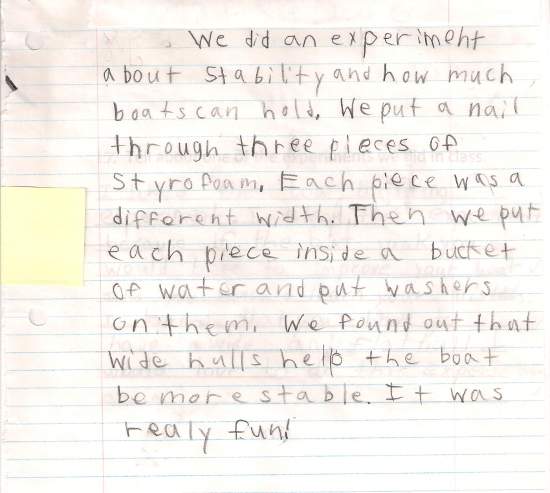 We did an experiment
about stability and how much
boats can hold. We put a nail
through three pieces of
styrofoam. Each piece was a
different width. Then we put
each piece inside a bucket
of water and put washers
on them. We found out that
wide hulls help the boat
be more stable. It was
realy fun!